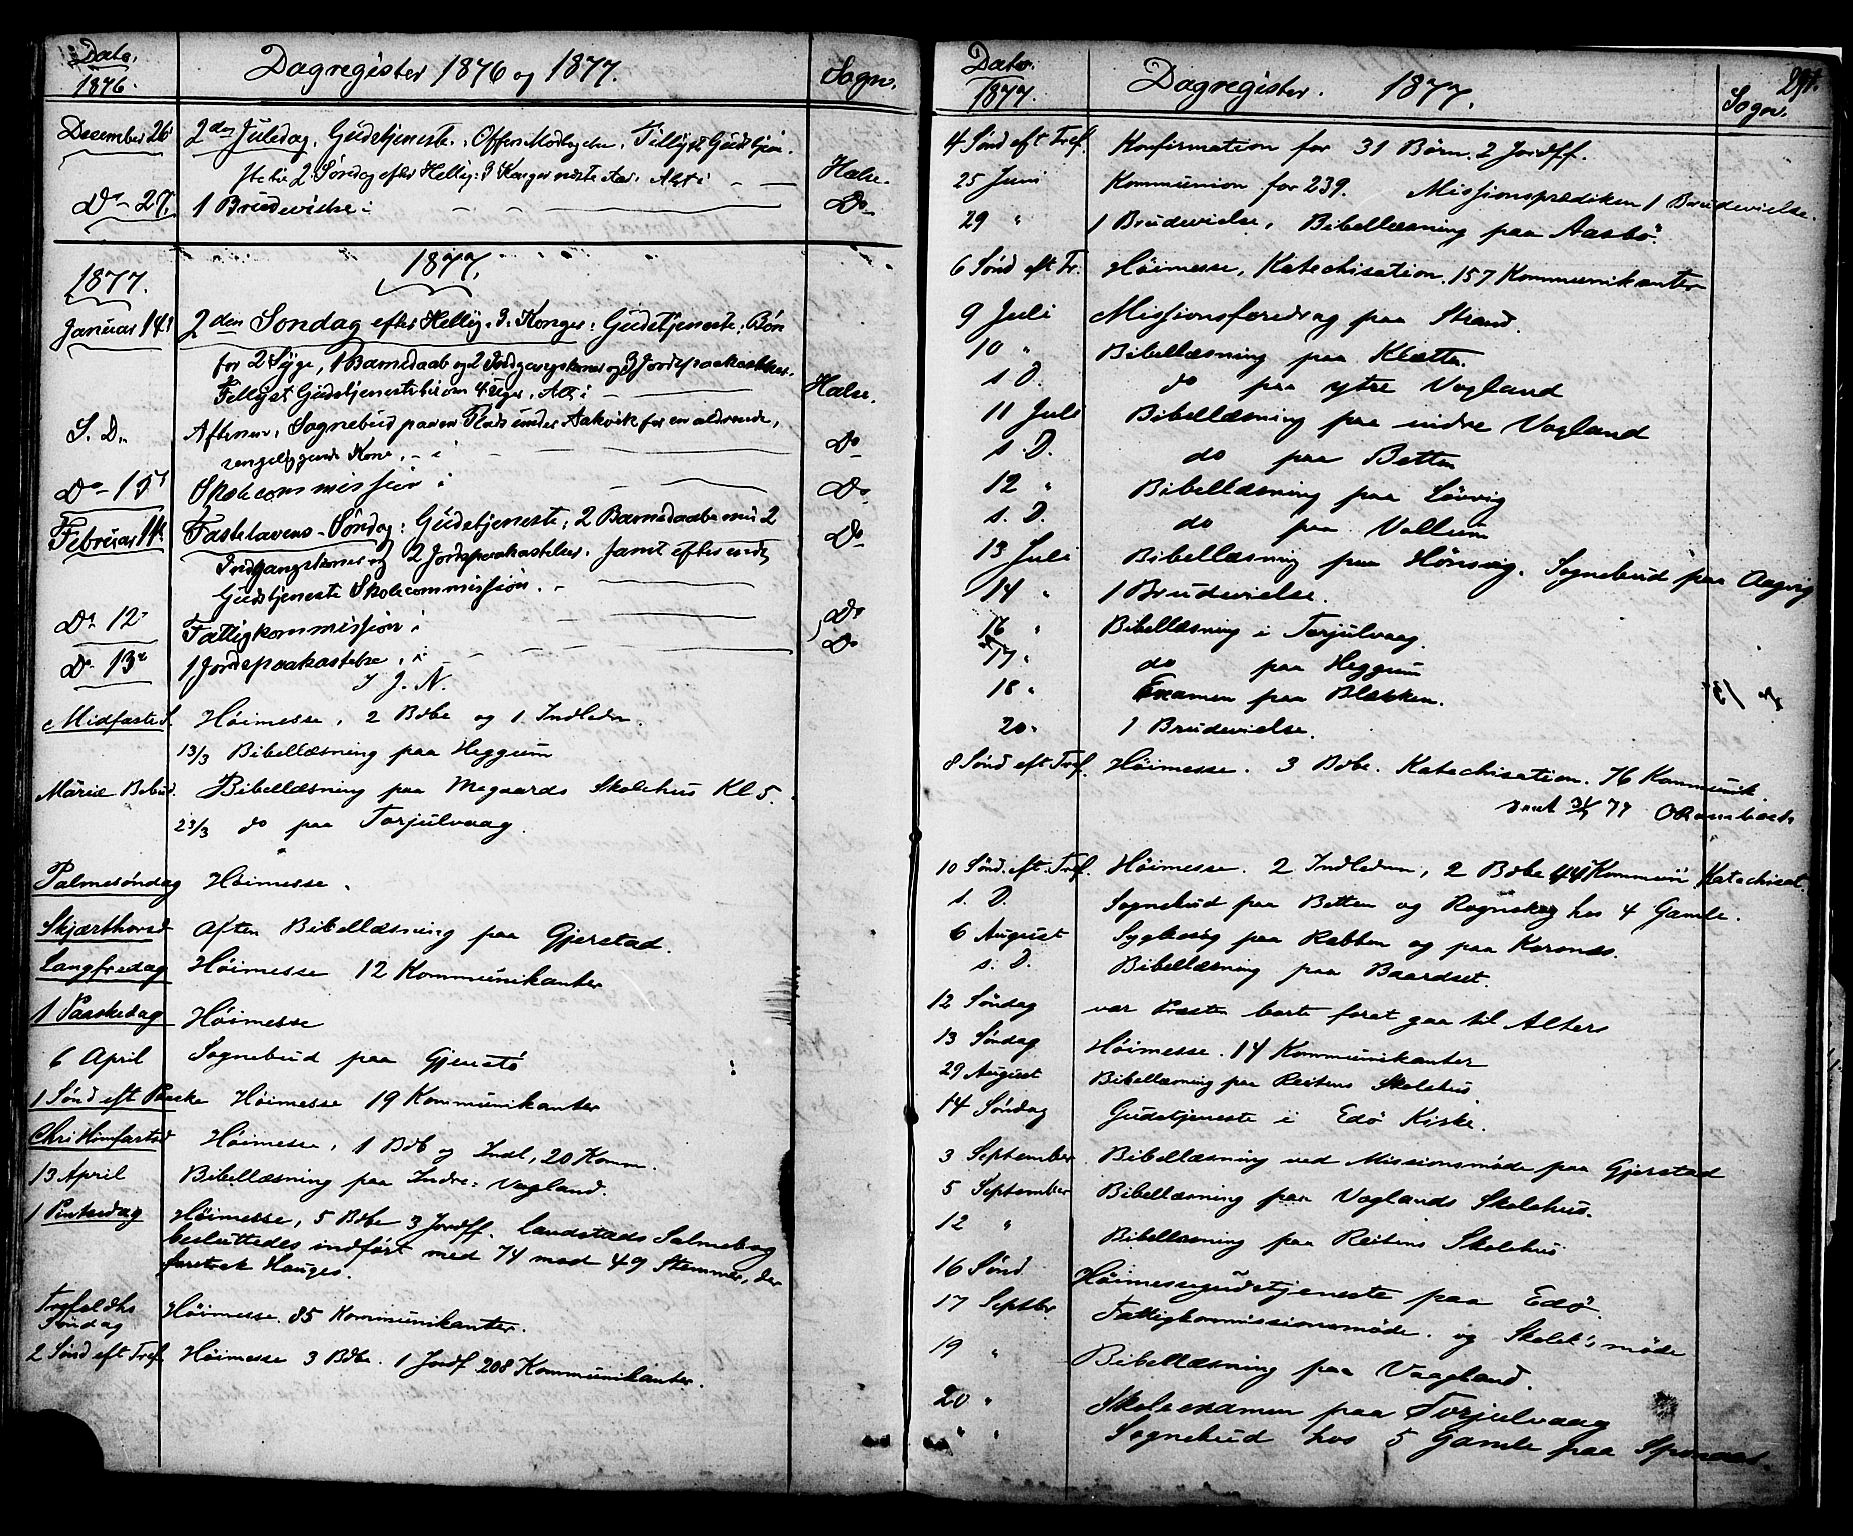 Dato.
1876.
Dagregister 1876 og 1877.
Sogn.
Desember 26
2den Juledag, Gudstjeneste. Offer Modtoges. Tillyst Gudstjen-
2 Søndag efter Hellig 3 Konger næste Aar. Alt i
Halse.
Do 27.
1 Brudevielse i
Do
1877.
1877.
Januar 14
2den Søndag efter Hellig. 3. Konger: Gudstjeneste, Bøn
for 2 Syge, 1 Barnedaab og 2 Indgangskoner og 3 Jordspaakastelser.
Tillyst Gudstjeneste her om 4 Uger. Alt i
Halse.
S. D.
Aftenen, Sognebud paa en Plads under Aakvik for en aldrende,
sengeliggende Kone, i
Do
Do 15
Skolecommission i
Do
Februar 11
Fastelavens-Søndag: Gudstjeneste; 2 Barnedaabe med 2
Indgangskoner og 2 Jordspaakastelser. Samt efter endt
Gudstjeneste Skolecommission.
Do
Do 12
Fattigkommission i
Do
Do 13
1 Jordspaakastelse, i
Do
I J. N.
Midfaste S.
Høimesse, 2 Bdbe og 1 Indledn.
13/3 Bibellæsning paa Heggum
Mariæ Bebud.
Bibellæsning paa Megaards Skolehus Kl 5.
23/3 do paa Torjulvaag.
Palmesøndag
Høimesse.
Skjærthorsd
Aften Bibellæsning paa Gjerstad.
Langfredag
Høimesse 12 Kommunikanter
1 Paaskedag
Høimesse
6 April
Sognebud paa Gjenstø
1 Sønd eft Paaske
Høimesse 19 Kommunikanter
Chri Himfartsd
Høimesse, 1 Bdb og Indl, 20 Komm.
13 April
Bibellæsning paa Indre: Vagland.
1 Pintsedag
Høimesse, 5 Bdbe 3 Jordff. Landstads Salmebog
besluttedes indført med 74 mod 49 Stemmer, der
foretrak Hauges.
Trefoldhs
Søndag
Høimesse. 85 Kommunikanter.
2 Sønd eft Tref.
Høimesse 3 Bdbe. 1 Jordf 208 Kommunikanter.
Dato.
1877.
Dagregister. 1877.
291.
Sogn.
4 Sønd eft Tref.
Konfirmation for 31 Børn. 2 Jordff.
25 Juni
Kommunion for 239. Missionsprædiken 1 Brudevielse.
29 "
1 Brudevielse, Bibellæsning paa Aasbø.
6 Sønd eft Tr.
Høimesse, Katechisation. 157 Kommunikanter
9 Juli
Missionsforedrag paa Strand.
10 "
Bibellæsning paa Kletten
s. D.
do paa ytre Vagland
11 Juli
Bibellæsning paa indre Vagland
s. D.
do paa Betten
12 "
Bibellæsning paa Lervig
s. D.
do paa Vollum
13 Juli
Bibellæsning paa Hønsvig. Sognebud paa Aagvig
14 "
1 Brudevielse.
16 "
Bibellæsning i Torjulvaag.
17 "
do paa Heggum
18 "
Examen paa Blakken.
20 "
1 Brudevielse.
8 Sønd eft Tref.
Høimesse. 3 Bdbe. Katechisation. 76 Kommunik
10 Sønd. eft. Tref.
Høimesse. 2 Indledn, 2 Bdbe 44 Kommun Katechisat.
s. D.
Sognebud paa Betten og Rognskog hos 4 Gamle.
6 August
Sygbesøg paa Rabben og paa Korsnæs.
s. D.
Bibellæsning paa Baardset.
12 Søndag
var Præsten borte foret gaa til Alters
13 Søndag
Høimesse. 14 Kommunikanter
29 August
Bibellæsning paa Reitens Skolehus.
14 Søndag
Gudstjeneste i Edø Kirke.
3 September
Bibellæsning ved Missionsmøde paa Gjerstad
5 September
Bibellæsning paa Vaglands Skolehus.
12 "
Bibellæsning paa Reitens Skolehus
16 Sønd
Høimessegudstjeneste paa Edø.
17 Septbr
Fattigkommissionsmøde. og Skolek's møde
19 "
Bibellæsning paa Vaagland.
20 "
Skoleexamen paa Torjulvaag
" "
Sognebud hos 5 Gamle paa